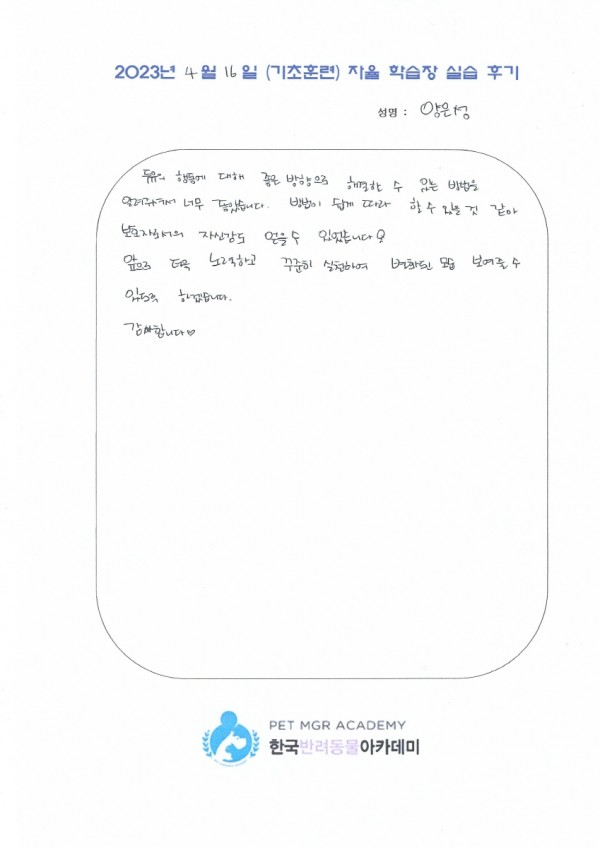 2023년 4월 16일 (기초훈련) 자율 학습장 실습 후기
성명 : 양은성
두유의 행동에 대해 좋은 방향으로 해결할 수 있는 방법을
알려주셔서 너무 좋았습니다. 방법이 쉽게 따라 할 수 있을 것 같아
보호자로서의 자신감도 얻을 수 있었습니다
앞으로 더욱 노력하고 꾸준히 실천하여 변화된 모습 보여줄 수
있도록 하겠습니다.
감사합니다♡
PET MGR ACADEMY
한국반려동물아카데미